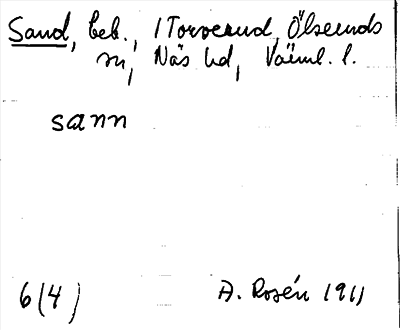 Sand, beb., 1 Torverud, Ölseruds
sn, Näs hd, Värml. l.
sann
6(4) A. Rosén 1911